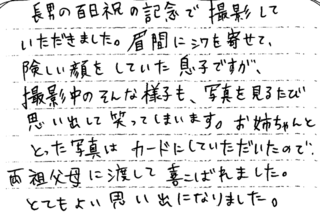 長男の百日祝の記念で撮影して
いただきました。眉間にシワを寄せて、
険しい顔をしていた息子ですが、
撮影中のそんな様子も、写真を見るたび
思い出して笑ってしまいます。お姉ちゃんと
とった写真はカードにしていただいたので、
両祖父母に渡して喜こばれました。
とてもよい思い出になりました。